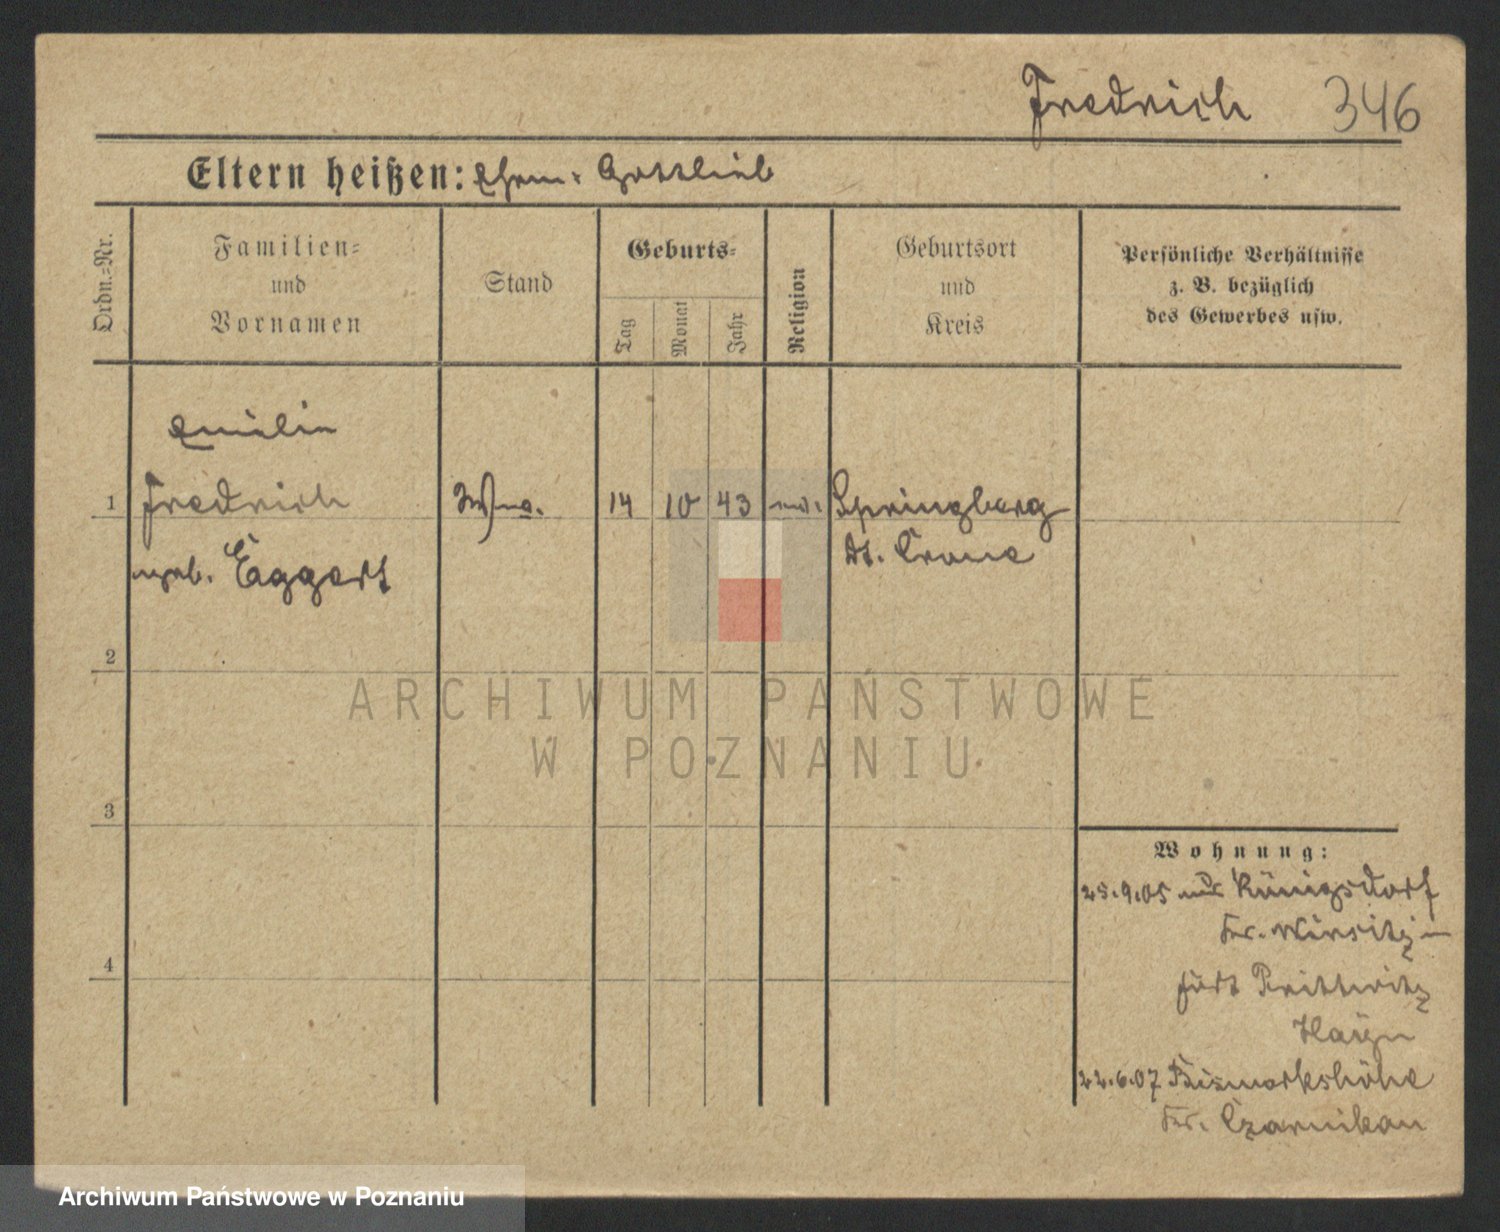 Fredrich 346
Eltern heißen: Ehem: Gottlieb
Ordn.=Nr.
Familien=
und
Vornamen
Stand
Geburts=
Tag
Monat
Jahr
Religion
Geburtsort
und
Kreis
Persönliche Verhältnisse
z. B. bezüglich
des Gewerbes usw.
Emilie
1 Fredrich Wwe. 14 10 43 Springberg
geb. Eggert Dt. Crone
2
3
4
Wohnung:
25.9.05 aus Königsdorf
Kr. Wirsitz
Fort Prittwitz
22.6.07 Bismarkshöhe
Kr. Czarnikau
ARCHIWUM PAŃSTWOWE
W POZNANIU
Archiwum Państwowe w Poznaniu